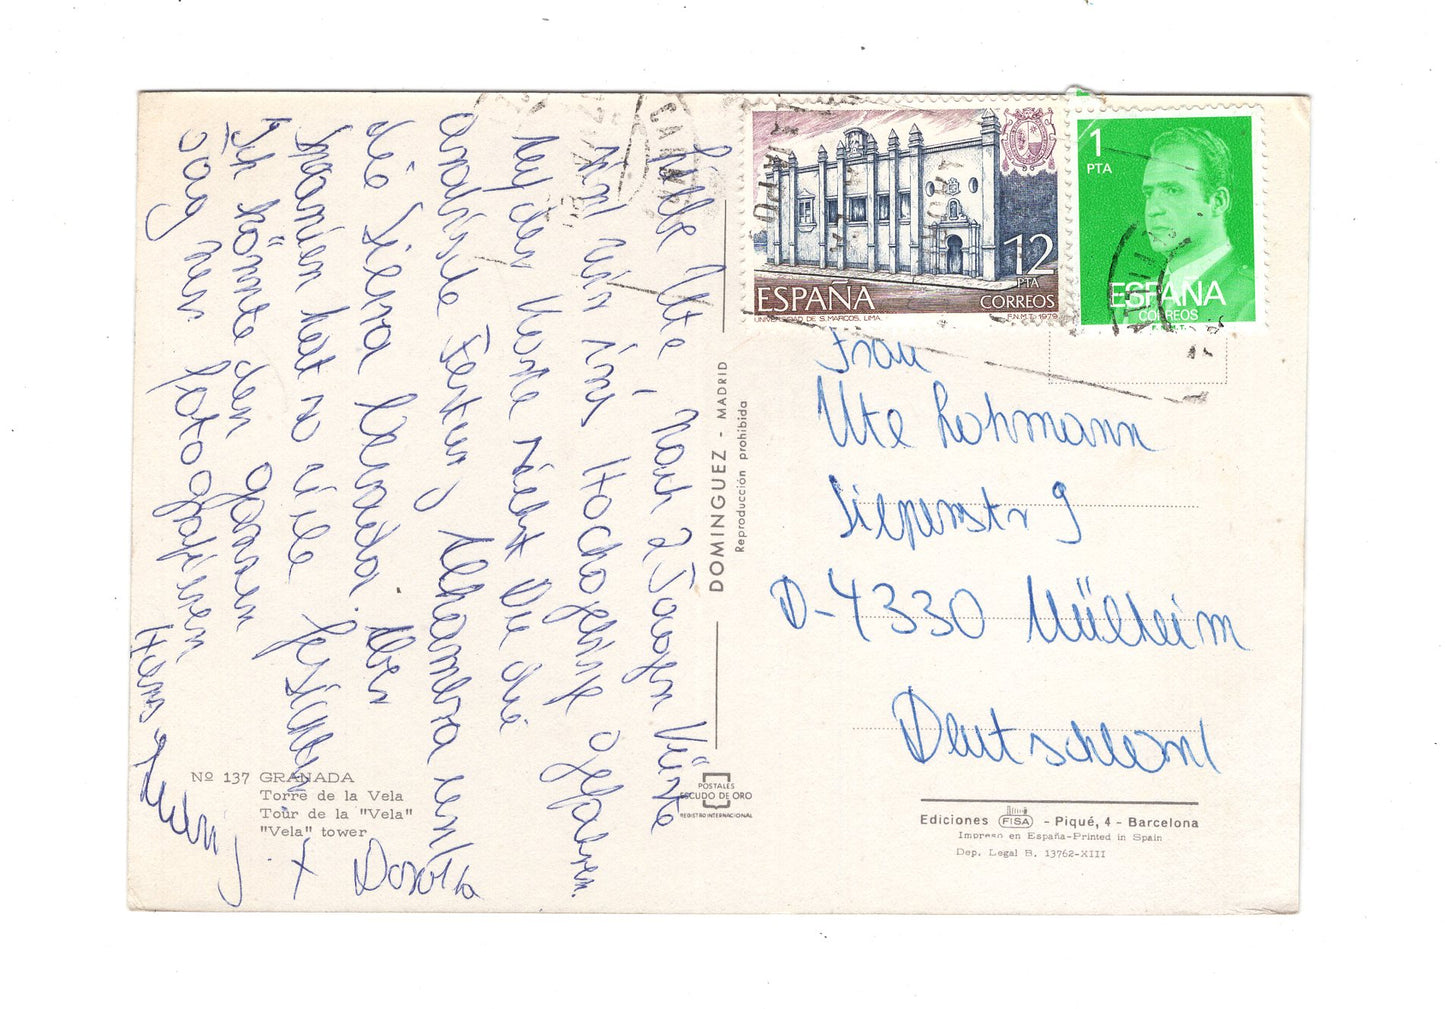 Liebe Ute, Nach 2 Tagen Wüste
sind wir ins Hochgebirge gefahren.
Auf der Karte siehst Du die
arabische Festung Alhambra und
die Sierra Nevada. Aber
Spanien hat so viele Gesichter.
Ich könnte den ganzen
Tag nur fotografieren
Herz
Dorothea
Nº 137 GRANADA
Torre de la Vela
Tour de la "Vela"
"Vela" tower
DOMINGUEZ - MADRID
Reproducción prohibida
POSTALES
ESCUDO DE ORO
REGISTRO INTERNACIONAL
12
PTA
ESPAÑA CORREOS
UNIVERSIDAD DE S. MARCOS, LIMA. F.N.M.T. 1979
1
PTA
ESPAÑA
CORREOS
F.N.M.T.
Frau
Ute Lohmann
str 9
D-4330 Mülheim
Deutschland
Ediciones FISA - Piqué, 4 - Barcelona
Impreso en España-Printed in Spain
Dep. Legal B. 13762-XIII